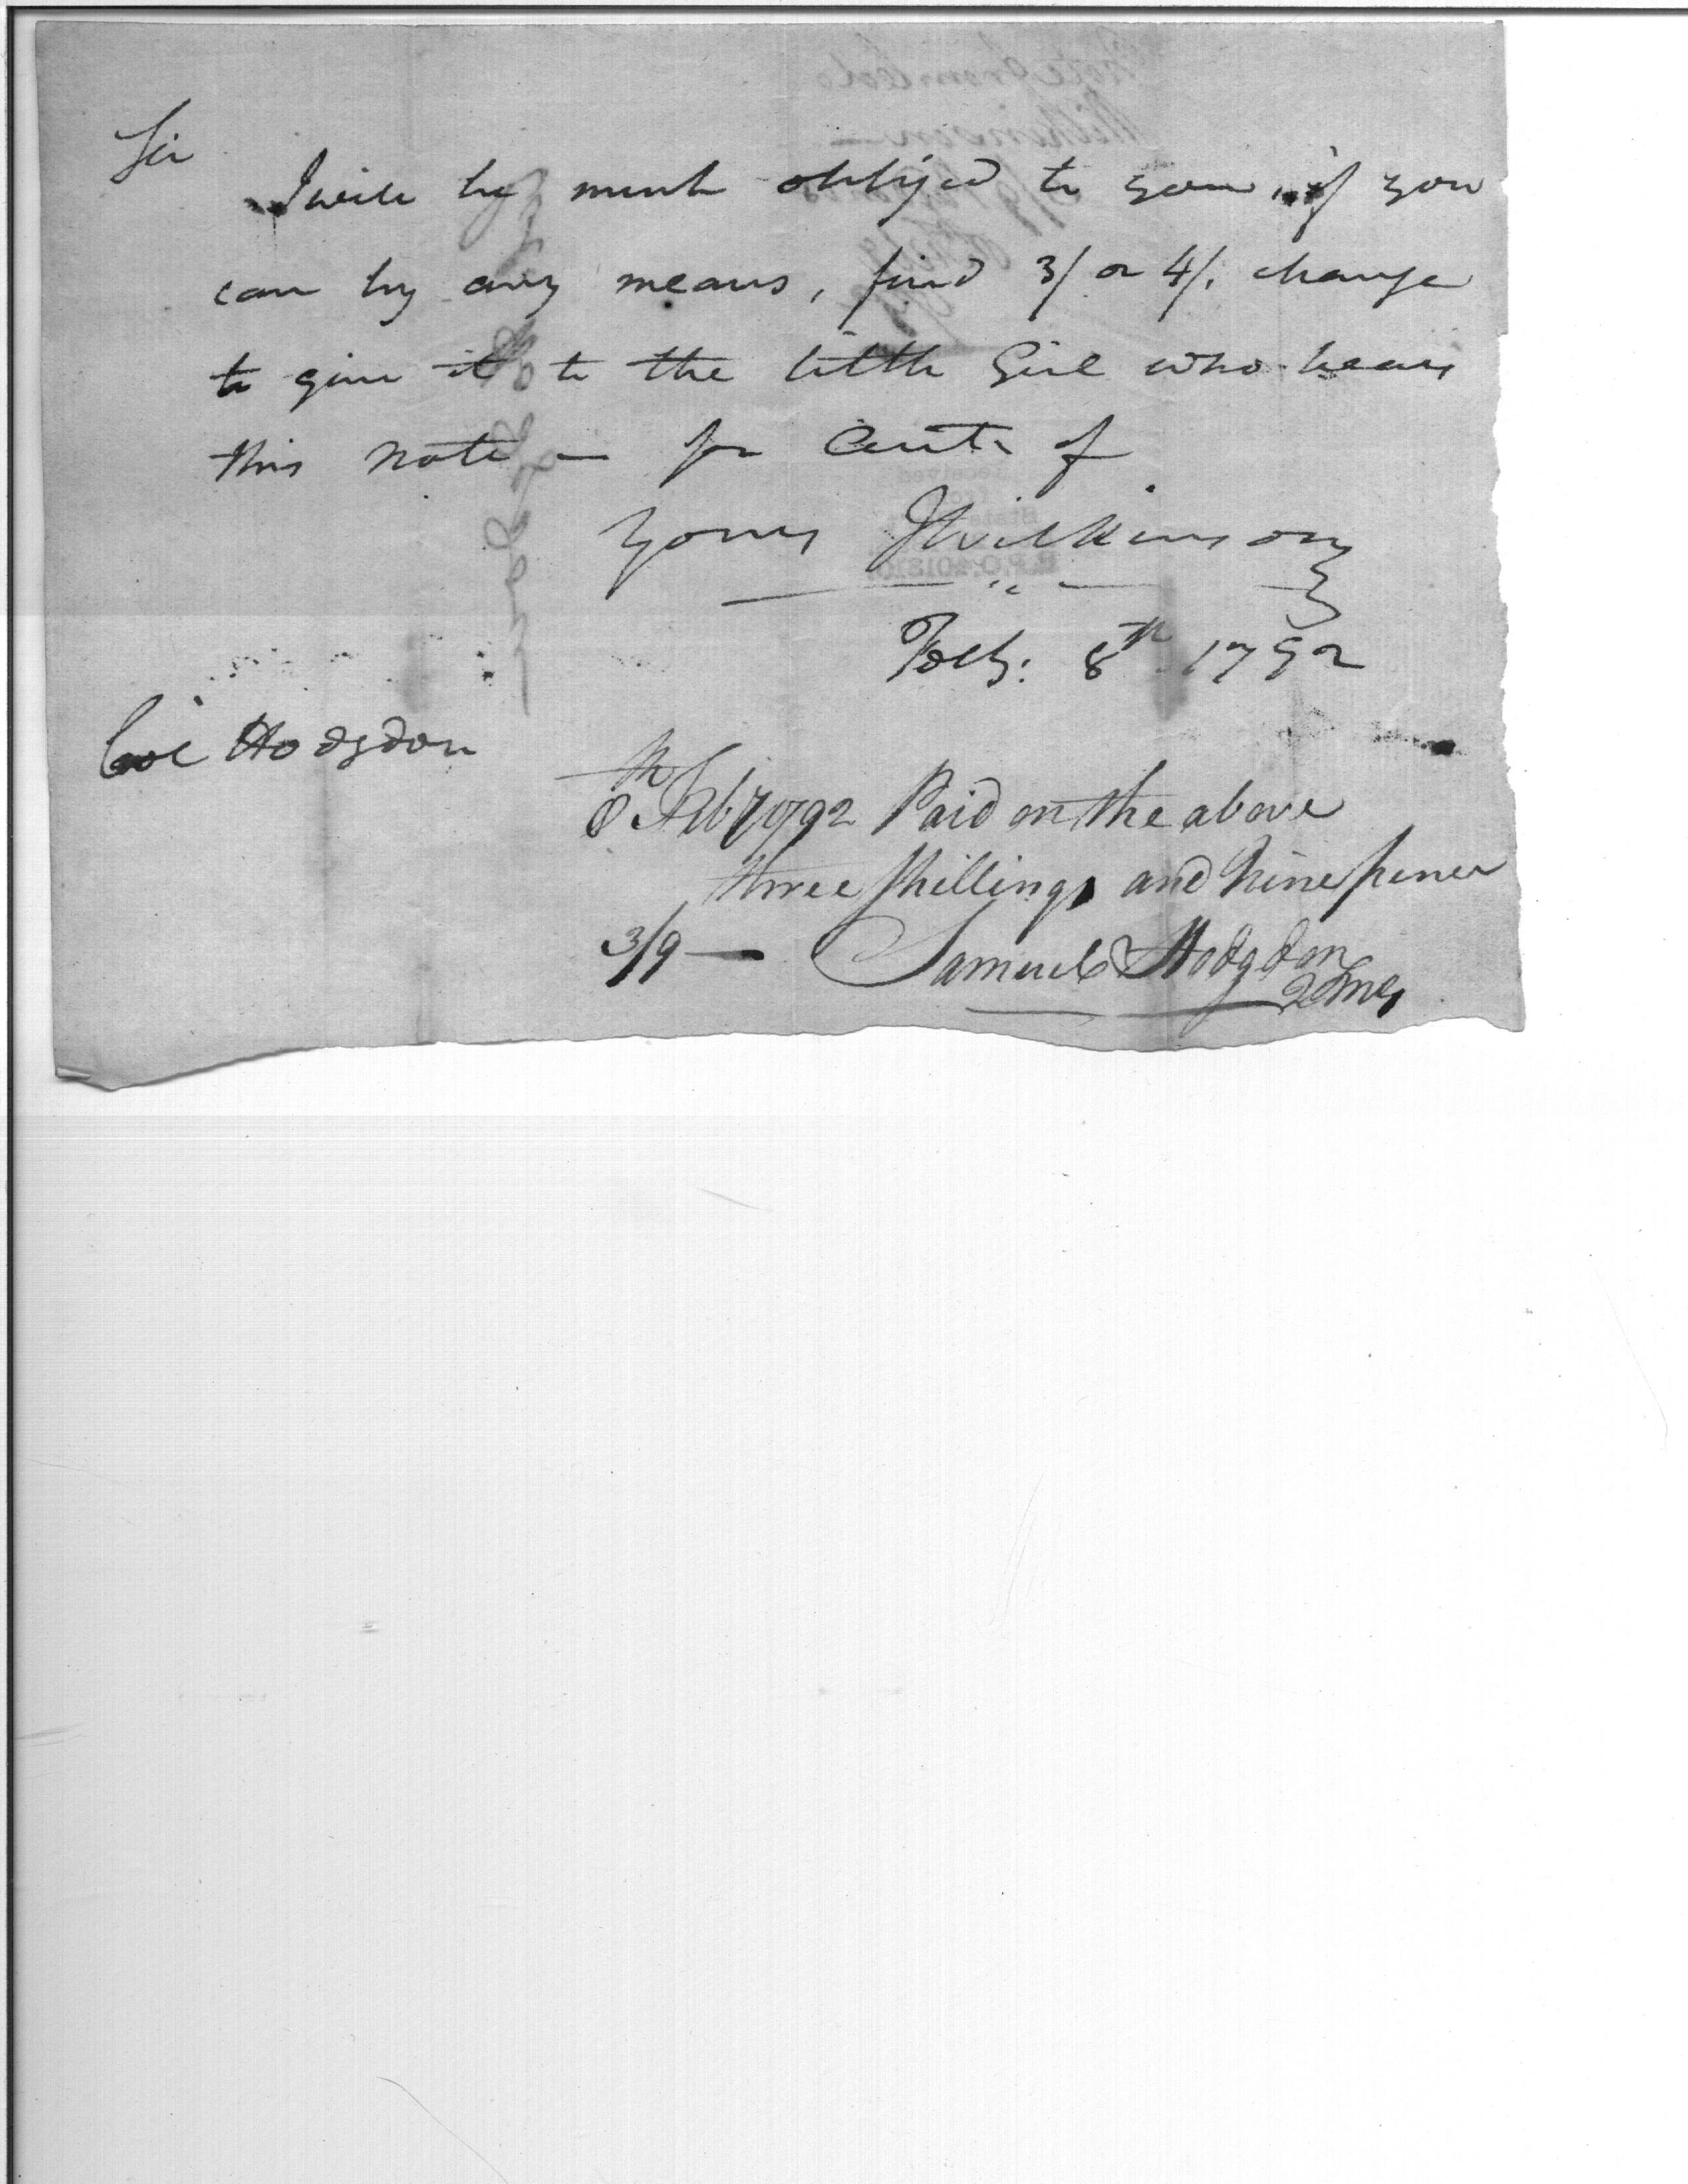 Sir
I will be much obliged to you, if you
can by any means, find 3/ or 4/. change
to give it to the little Girl who bears
this note — for Acct. of
Yours JWilkinson
Feby: 8th 1792
Col Hodgdon
8th Feby 1792 Paid on the above
three shillings and nine pence
3/9 — Samuel Hodgdon
QMG